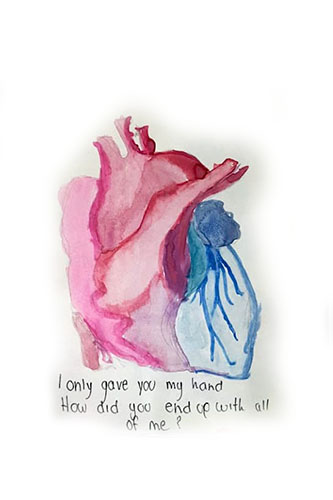 I only gave you my hand
How did you end up with all
of me?